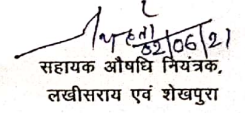 02/06/21
सहायक औषधि नियंत्रक,
लखीसराय एवं शेखपुरा